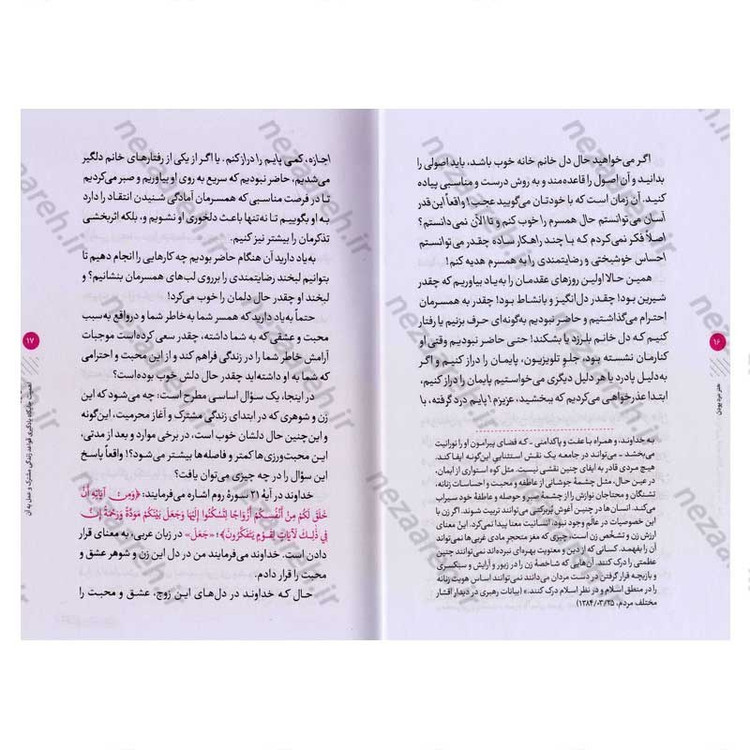 اگر می‌خواهید حال دل خانم خانه خوب باشد، باید اصولی را
بدانید و آن اصول را قاعده‌مند و به روش درست و مناسبی پیاده
کنید. آن زمان است که با خودتان می‌گویید عجب! واقعاً این‌قدر
آسان می‌توانستم حال همسرم را خوب کنم و تا الآن نمی‌دانستم؟
اصلاً فکر نمی‌کردم که با چند راهکار ساده چقدر می‌توانستم
احساس خوشبختی و رضایتمندی را به همسرم هدیه کنم!
همین حالا اولین روزهای عقدمان را به‌یاد بیاوریم که چقدر
شیرین بود! چقدر دل‌انگیز و بانشاط بود! چقدر به همسرمان
احترام می‌گذاشتیم و حاضر نبودیم به‌گونه‌ای حرف بزنیم یا رفتار
کنیم که دل خانم بلرزد یا بشکند! حتی حاضر نبودیم وقتی او
کنارمان نشسته بود، جلوِ تلویزیون، پایمان را دراز کنیم و اگر
به‌دلیل پادرد یا هر دلیل دیگری می‌خواستیم پایمان را دراز کنیم،
ابتدا عذرخواهی می‌کردیم که ببخشید، عزیزم! پایم درد گرفته، با
به خداوند، و همراه با عفت و پاکدامنی ـ که فضای پیرامون او را نورانیت
می‌بخشد ـ می‌تواند در جامعه یک نقش استثنایی این‌گونه ایفا کند.
هیچ مردی قادر به ایفای چنین نقشی نیست. مثل کوه استواری از ایمان،
در عین حال، مثل چشمهٔ جوشانی از عاطفه و محبت و احساسات زنانه،
تشنگان و محتاجان نوازش را از چشمهٔ صبر و حوصله و عاطفهٔ خود سیراب
می‌کند. انسان‌ها در چنین آغوش پُربرکتی می‌توانند تربیت شوند. اگر زن با
این خصوصیات در عالم وجود نبود، انسانیت معنا پیدا نمی‌کرد. این معنای
ارزش زن و تشخّص زن است، چیزی که مغز متحجرِ مادی غربی‌ها نمی‌تواند
آن را بفهمد. کسانی که از دین و معنویت بهره‌ای نبرده‌اند نمی‌توانند چنین
عظمتی را درک کنند. آن‌هایی که شاخصهٔ زن را در زیور و آرایش و سبکسری
و بازیچه قرار گرفتن در دست مردان می‌دانند نمی‌توانند اساس هویت زنانه
را در منطق اسلام و در نظر اسلام درک کنند.» (بیانات رهبری در دیدار اقشار
مختلف مردم، ۱۳۸۴/۰۳/۲۵)
۱۶
هنر مرد بودن
اجازه، کمی پایم را دراز کنم. یا اگر از یکی از رفتارهای خانم دلگیر
می‌شدیم، حاضر نبودیم که سریع به روی او بیاوریم و صبر می‌کردیم
تا در فرصت مناسبی که همسرمان آمادگی شنیدن انتقاد را دارد
به او بگوییم تا نه‌تنها باعث دلخوری او نشویم و، بلکه اثربخشی
تذکرمان را بیشتر نیز کنیم.
به‌یاد دارید آن هنگام حاضر بودیم چه کارهایی را انجام دهیم تا
بتوانیم لبخند رضایتمندی را برروی لب‌های همسرمان بنشانیم؟ و
لبخند او چقدر حال دلمان را خوب می‌کرد!
حتماً به‌یاد دارید که همسر شما به خاطر شما و درواقع به‌سبب
محبت و عشقی که به شما داشته، چقدر سعی کرده‌است موجبات
آرامش خاطر شما را در زندگی فراهم کند و از این محبت و احترامی
که شما به او داشته‌اید چقدر حال دلش خوب بوده‌است؟
در اینجا، یک سؤال اساسی مطرح است: چه می‌شود که این
زن و شوهری که در ابتدای زندگی مشترک و آغاز محرمیت، این‌گونه
و این‌چنین حال دلشان خوب است، در برخی موارد و بعد از مدتی،
این محبت‌ورزی‌ها کمتر و فاصله‌ها بیشتر می‌شود؟! واقعاً پاسخ
این سؤال را در چه چیزی می‌توان یافت؟
خداوند در آیهٔ ۲۱ سورهٔ روم اشاره می‌فرمایند: ﴿وَمِنْ آيَاتِهِ أَنْ
خَلَقَ لَكُمْ مِنْ أَنْفُسِكُمْ أَزْوَاجًا لِتَسْكُنُوا إِلَيْهَا وَجَعَلَ بَيْنَكُمْ مَوَدَّةً وَرَحْمَةً إِنَّ
فِي ذَلِكَ لَآيَاتٍ لِقَوْمٍ يَتَفَكَّرُونَ﴾؛ «جَعَلَ» در زبان عربی، به معنای قرار
دادن است. خداوند می‌فرمایند من در دل این زن و شوهر عشق و
محبت را قرار دادم.
حال که خداوند در دل‌های این زوج، عشق و محبت را
۱۷
اهمیت جایگاه یادگیری قواعد زندگی مشترک و عمل به آن
nezaareh.ir